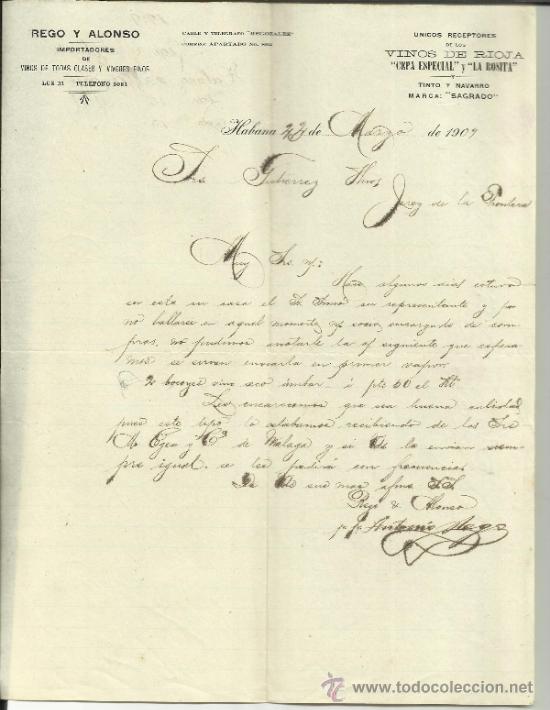 REGO Y ALONSO
IMPORTADORES
DE
VINOS DE TODAS CLASES Y VIVERES FINOS
LUZ 21 TELÉFONO 3081
CABLE Y TELEGRAFO
CORREO: APARTADO No.
UNICOS RECEPTORES
DE LOS
VINOS DE RIOJA
"CEPA ESPECIAL" y "LA ROSITA"
Y
TINTO Y NAVARRO
MARCA: "SAGRADO"
Habana 24 de Marzo de 1909
Sres Gutierrez Hnos
Jerez de la Frontera
Muy Srs. ns:
Hace algunos dias estuvo
en esta su casa el Sr. su representante y por
no hallarse en aquel momento ns/ socio encargado de com
pras, no pudimos anotarle la of siguiente que espera
mos se sirvan enviarla en primer vapor
20 bocoyes vino seco ámbar á pts 60 el Ht.
Les encarecemos que sea buena calidad
pues este tipo lo acabamos recibiendo de los Sres
A. Egea y Ca de Malaga y si Vds la envian siem
pre igual, se les pedirá con frecuencia
De Vds sus mas afmos SS
Rego & Alonso
p.p. Antonio
www.todocoleccion.net